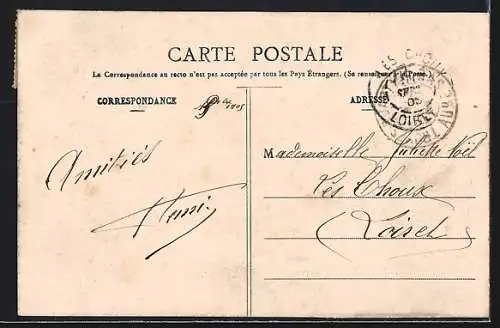 CARTE POSTALE
La Correspondance au recto n'est pas acceptée par tous les Pays Étrangers. (Se renseigner à la Poste.)
CORRESPONDANCE
ADRESSE
LES CHOUX
LOIRET
Amitiés
Henri
Mademoiselle Juliette Noël
Les Choux
Loiret